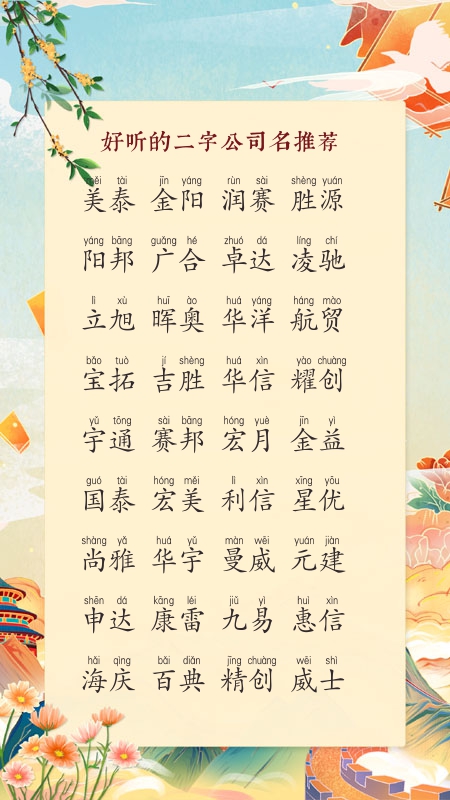 好听的二字公司名推荐
měi tài jīn yáng rùn sài shèng yuán
美泰 金阳 润赛 胜源
yáng bāng guǎng hé zhuó dá líng chí
阳邦 广合 卓达 凌驰
lì xù huī ào huá yáng háng mào
立旭 晖奥 华洋 航贸
bǎo tuò jí shèng huá xìn yào chuàng
宝拓 吉胜 华信 耀创
yǔ tōng sài bāng hóng yuè jīn yì
宇通 赛邦 宏月 金益
guó tài hóng měi lì xìn xīng yōu
国泰 宏美 利信 星优
shàng yǎ huá yǔ màn wēi yuán jiàn
尚雅 华宇 曼威 元建
shēn dá kāng léi jiǔ yì huì xìn
申达 康雷 九易 惠信
hǎi qìng bǎi diǎn jīng chuàng wēi shì
海庆 百典 精创 威士